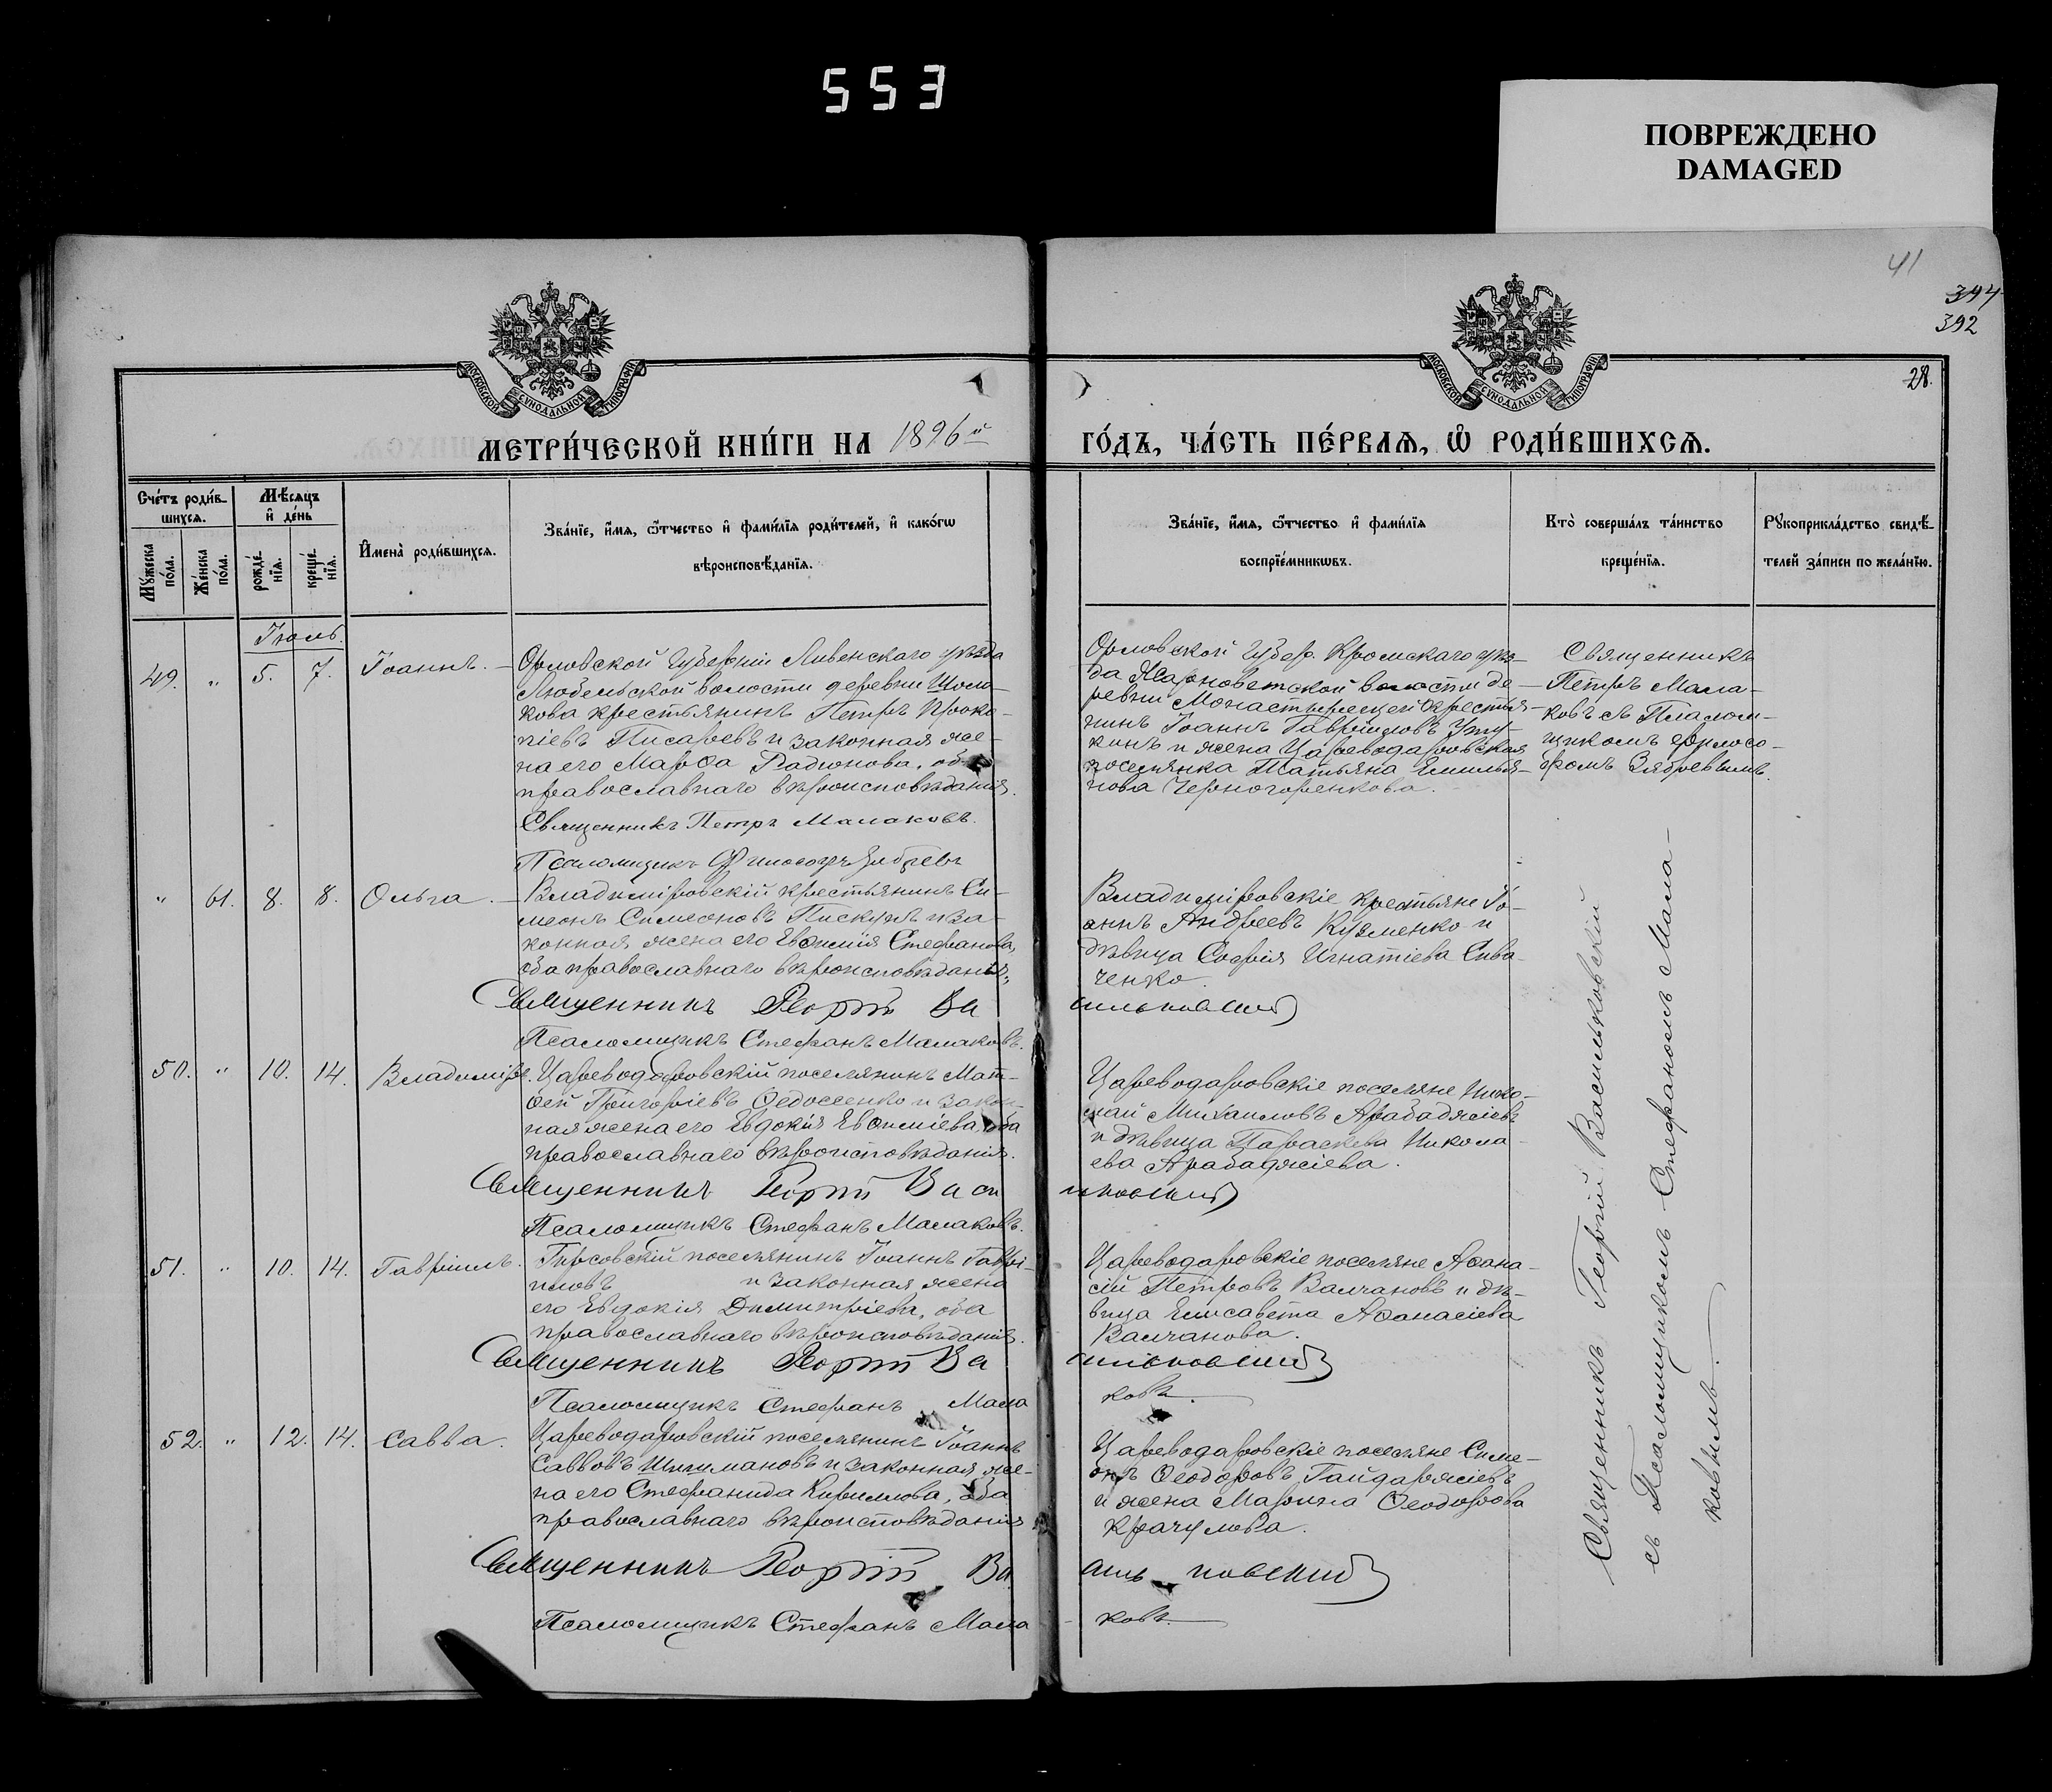 553
ПОВРЕЖДЕНО
DAMAGED
41
394
392
28.
МОСКОВСКОЙ СѴНОДАЛЬНОЙ ТИПОГРАФІИ
МОСКОВСКОЙ СѴНОДАЛЬНОЙ ТИПОГРАФІИ
МЕТРИ́ЧЕСКОЙ КНИ́ГИ НА 1896й
ГО́ДЪ, ЧА́СТЬ ПЕ́РВАѦ, Ѡ҆ РОДИ́ВШИХСѦ.
Сче́тъ роди́в-
шихсѧ.
Мѣ́сѧцъ
и҆ де́нь
Мꙋ́жеска
по́ла.
Же́нска
по́ла.
рожде́-
нїѧ.
креще́-
нїѧ.
И҆мена̀ роди́вшихсѧ.
Зва́нїе, и҆́мѧ, ѻ҆́тчество и҆ фами́лїѧ роди́телей, и҆ како́гѡ
вѣроисповѣ́данїѧ.
Зва́нїе, и҆́мѧ, ѻ҆́тчество и҆ фами́лїѧ
воспрїе́мникѡвъ.
Кто̀ соверша́лъ та́инство
креще́нїѧ.
Рꙋкоприкла́дство свидѣ́-
телей за́писи по жела́нїю.
Іюль.
49. " 5. 7. Іоаннъ. –
Орловской Губерніи Ливенскаго уѣзда
Любельской волости деревни Шоли-
кова крестьянинъ Петръ Проко-
піевъ Писаревъ и законная же-
на его Марѳа Радионова, оба
православнаго вѣроисповѣданія.
Священникъ Петръ Малаковъ.
Псаломщикъ Философъ Зябревъ
Орловской Губер. Кромскаго уѣз-
да волости де-
ревни крестья-
нинъ Іоаннъ Гавріиловъ
кинъ и жена Цареводаровская
поселянка Татьяна Емилья-
нова Черногоренкова.
Священникъ
Петръ Мала-
ковъ съ Псалом-
щикомъ Филосо-
фомъ Зябревымъ.
" 61. 8. 8. Ольга. –
Владиміровскій крестьянинъ Си-
меонъ Симеоновъ Пискунъ и за-
конная жена его Евѳимія Стефанова,
оба православнаго вѣроисповѣданія.
Священникъ Георгій Ва
сильковский
Псаломщикъ Стефанъ Малаковъ.
Владиміровскіе крестьяне Іо-
аннъ Андреевъ Кузменко и
дѣвица Софія Игнатіева Сива-
ченко.
50. " 10. 14. Владиміръ.
Цареводаровскій поселянинъ Мат-
ѳей Григоріевъ Ѳедосенко и закон-
ная жена его Евдокія Евѳиміева, оба
православнаго вѣроисповѣданія.
Священникъ Георгій Васи
льковский
Псаломщикъ Стефанъ Малаковъ.
Цареводаровскіе поселяне Нико-
лай Михаиловъ Арабаджіевъ
и дѣвица Параскева Никола-
ева Арабаджіева.
51. " 10. 14. Гавріилъ.
Гирсовскій поселянинъ Іоаннъ Гаврі-
иловъ и законная жена
его Евдокія Димитріева, оба
православнаго вѣроисповѣданія.
Священникъ Георгій Ва
сильковский
Псаломщикъ Стефанъ Мала
ковъ.
Цареводаровскіе поселяне Аѳана-
сій Петровъ Валчановъ и дѣ-
вица Елисавета Аѳанасіева
Валчанова.
52. " 12. 14. Савва.
Цареводаровскій поселянинъ Іоаннъ
Саввовъ Шишмановъ и законная же-
на его Стефанида Кириллова, оба
православнаго вѣроисповѣданія
Священникъ Георгій Ва
силь ковский
Псаломщикъ Стефанъ Мала
ковъ.
Цареводаровскіе поселяне Симе-
онъ Ѳеодоровъ Гайдаржіевъ
и жена Марина Ѳеодорова
Крачулова.
Священникъ Георгій Васильковскій
съ Псаломщикомъ Стефаномъ Мала-
ковымъ.